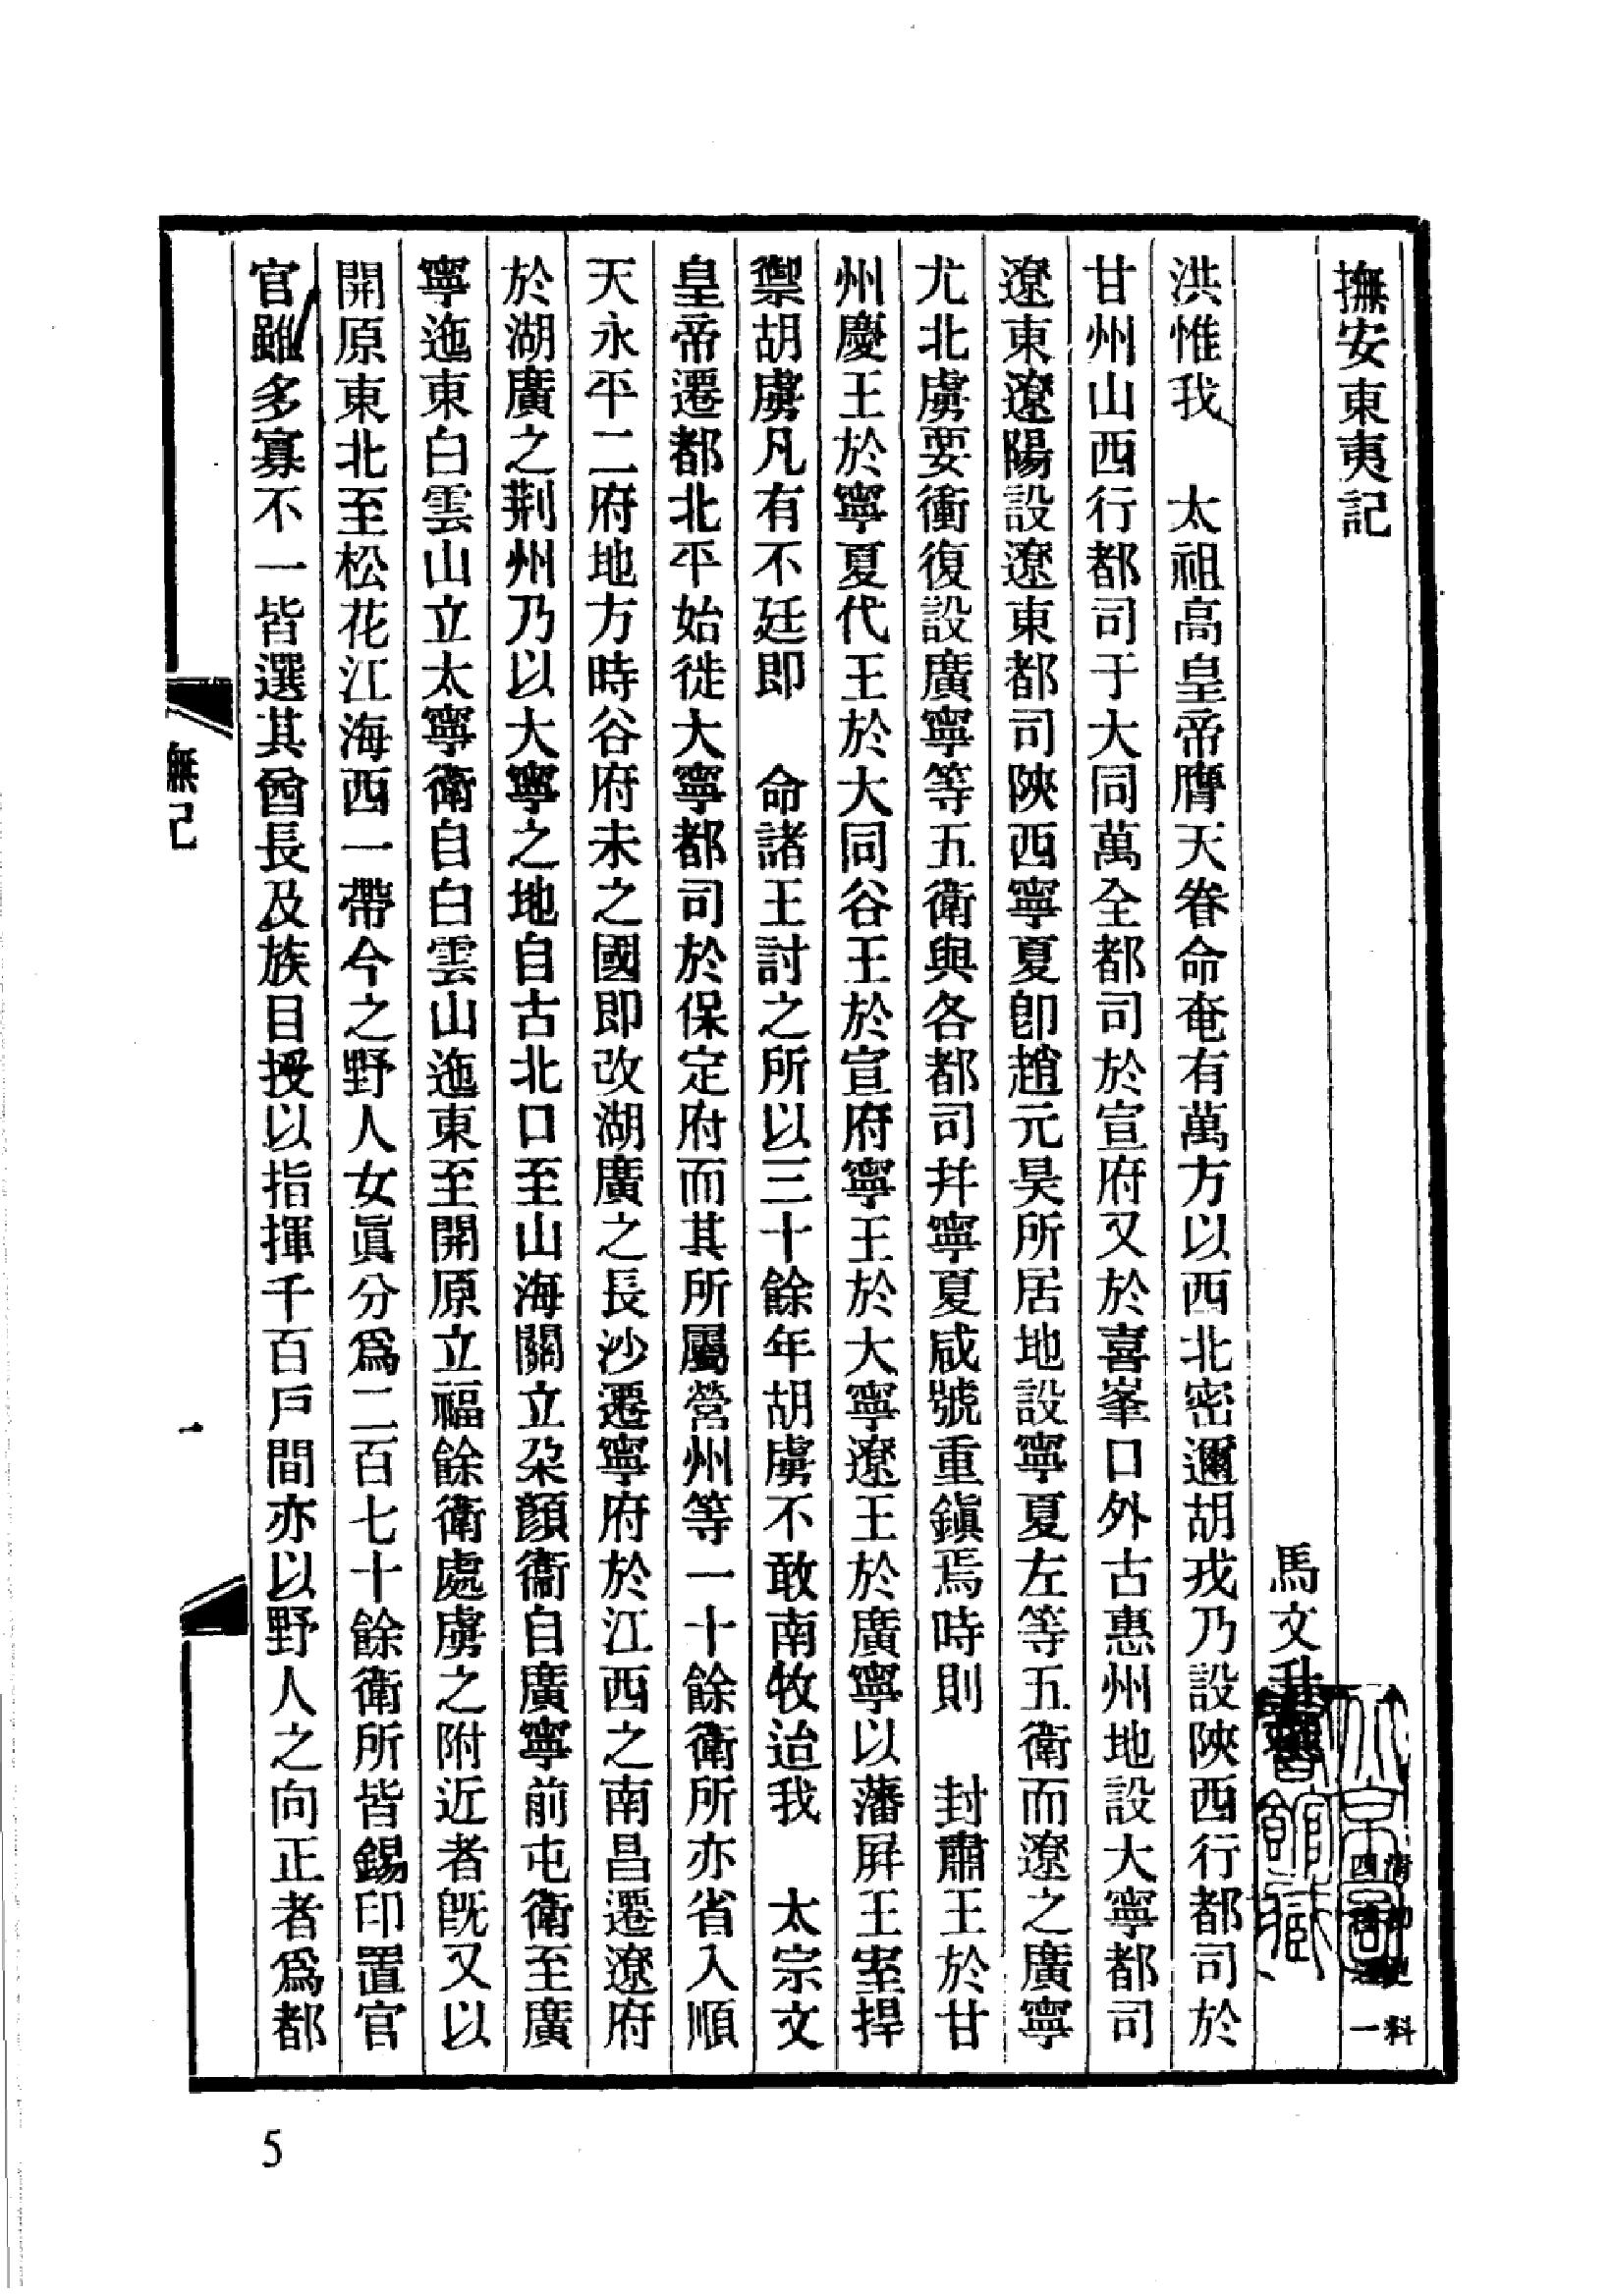 撫安東夷記
馬文升
洪惟我　太祖高皇帝膺天眷命奄有萬方以西北密邇胡戎乃設陝西行都司於
甘州山西行都司于大同萬全都司於宣府又於喜峯口外古惠州地設大寧都司
遼東遼陽設遼東都司陝西寧夏卽趙元昊所居地設寧夏左等五衛而遼之廣寧
尤北虜要衝復設廣寧等五衛與各都司幷寧夏咸號重鎭焉時則　封肅王於甘
州慶王於寧夏代王於大同谷王於宣府寧王於大寧遼王於廣寧以藩屛王室捍
禦胡虜凡有不廷即　命諸王討之所以三十餘年胡虜不敢南牧迨我　太宗文
皇帝遷都北平始徙大寧都司於保定府而其所屬營州等一十餘衛所亦省入順
天永平二府地方時谷府未之國即改湖廣之長沙遷寧府於江西之南昌遷遼府
於湖廣之荆州乃以大寧之地自古北口至山海關立朶顏衞自廣寧前屯衛至廣
寧迤東白雲山立太寧衛自白雲山迤東至開原立福餘衛處虜之附近者旣又以
開原東北至松花江海西一帶今之野人女眞分爲二百七十餘衛所皆錫印置官
官雖多寡不一皆選其酋長及族目授以指揮千百戶間亦以野人之向正者爲都
撫記
一
5